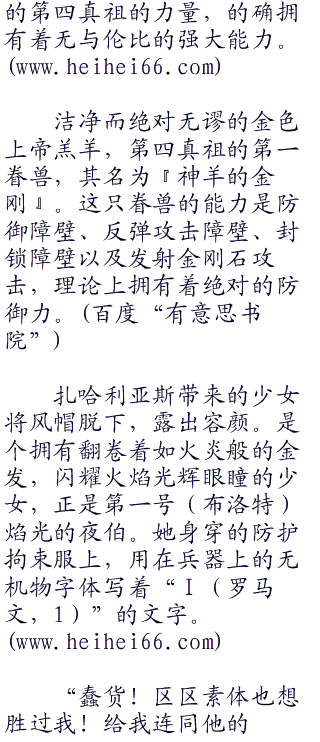 的第四真祖的力量，的确拥
有着无与伦比的强大能力。
(www.heihei66.com)
洁净而绝对无谬的金色
上帝羔羊，第四真祖的第一
眷兽，其名为『神羊的金
刚』。这只眷兽的能力是防
御障壁、反弹攻击障壁、封
锁障壁以及发射金刚石攻
击，理论上拥有着绝对的防
御力。(百度“有意思书
院”)
扎哈利亚斯带来的少女
将风帽脱下，露出容颜。是
个拥有翻卷着如火炎般的金
发，闪耀火焰光辉眼瞳的少
女，正是第一号（布洛特）
焰光的夜伯。她身穿的防护
拘束服上，用在兵器上的无
机物字体写着“Ⅰ（罗马
文，1）”的文字。
(www.heihei66.com)
“蠢货！区区素体也想
胜过我！给我连同他的